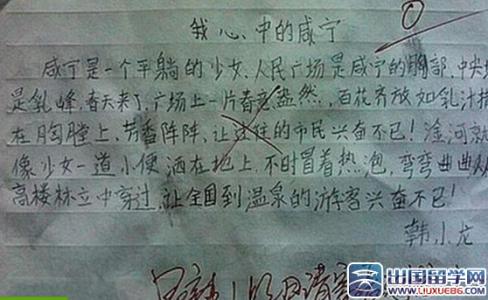 我心中的咸宁
咸宁是一个平躺的少女,人民广场是咸宁的胸部,中央
是乳峰,春天来了,广场上一片春意盎然,百花齐放如乳汁
在胸膛上,芳香阵阵,让过往的市民兴奋不已!淦河就
像少女一道小便洒在地上,不时冒着热泡,弯弯曲曲从
高楼林立中穿过,让全国到温泉的游客兴奋不已!
韩小龙
出国留学网
WWW.LIUXUE86.COM